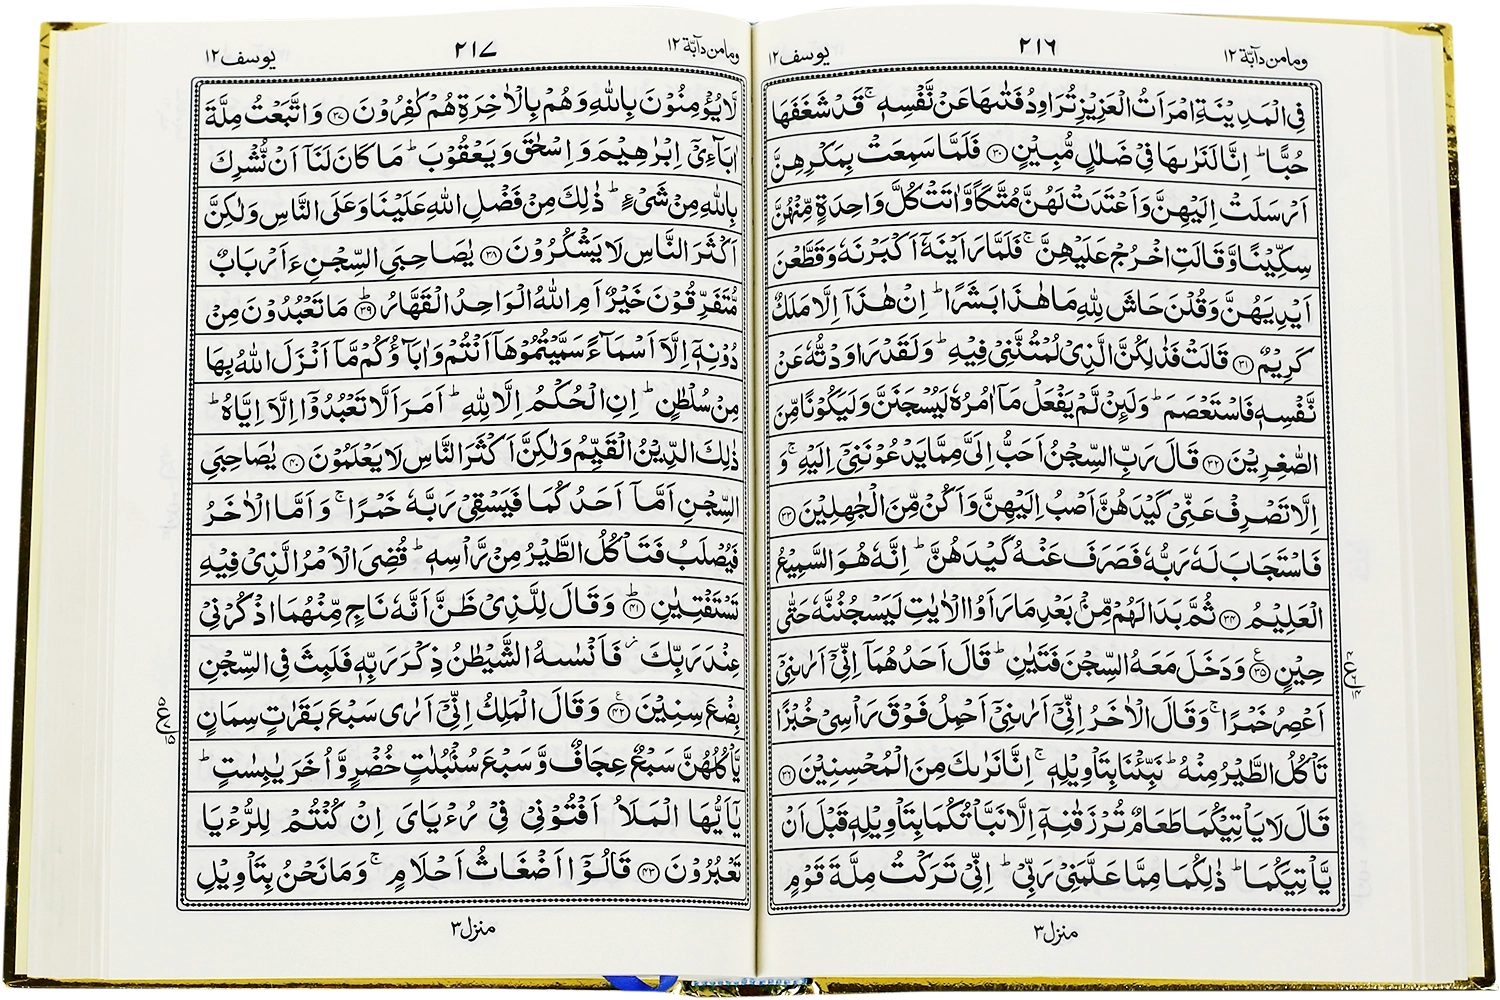 وما من دآبة ١٢
٢١٦
يوسف ١٢
فِى الْمَدِيْنَةِ امْرَاَتُ الْعَزِيْزِ تُرَاوِدُ فَتٰىهَا عَنْ نَّفْسِهٖ ۚ قَدْ شَغَفَهَا
حُبًّا ؕ اِنَّا لَنَرٰىهَا فِىْ ضَلٰلٍ مُّبِيْنٍ ﴿۳۰﴾ فَلَمَّا سَمِعَتْ بِمَكْرِهِنَّ
اَرْسَلَتْ اِلَيْهِنَّ وَاَعْتَدَتْ لَهُنَّ مُتَّكَاً وَّاٰتَتْ كُلَّ وَاحِدَةٍ مِّنْهُنَّ
سِكِّيْنًا وَّقَالَتِ اخْرُجْ عَلَيْهِنَّ ۚ فَلَمَّا رَاَيْنَهٗۤ اَكْبَرْنَهٗ وَقَطَّعْنَ
اَيْدِيَهُنَّ وَقُلْنَ حَاشَ لِلّٰهِ مَا هٰذَا بَشَرًا ؕ اِنْ هٰذَاۤ اِلَّا مَلَكٌ
كَرِيْمٌ ﴿۳۱﴾ قَالَتْ فَذٰلِكُنَّ الَّذِىْ لُمْتُنَّنِىْ فِيْهِ ؕ وَلَقَدْ رَاوَدْتُّهٗ عَنْ
نَّفْسِهٖ فَاسْتَعْصَمَ ؕ وَلَئِنْ لَّمْ يَفْعَلْ مَاۤ اٰمُرُهٗ لَيُسْجَنَنَّ وَلَيَكُوْنًا مِّنَ
الصّٰغِرِيْنَ ﴿۳۲﴾ قَالَ رَبِّ السِّجْنُ اَحَبُّ اِلَىَّ مِمَّا يَدْعُوْنَنِىْۤ اِلَيْهِ ۚ وَ
اِلَّا تَصْرِفْ عَنِّىْ كَيْدَهُنَّ اَصْبُ اِلَيْهِنَّ وَاَكُنْ مِّنَ الْجٰهِلِيْنَ ﴿۳۳﴾
فَاسْتَجَابَ لَهٗ رَبُّهٗ فَصَرَفَ عَنْهُ كَيْدَهُنَّ ؕ اِنَّهٗ هُوَ السَّمِيْعُ
الْعَلِيْمُ ﴿۳۴﴾ ثُمَّ بَدَا لَهُمْ مِّنْۢ بَعْدِ مَا رَاَوُا الْاٰيٰتِ لَيَسْجُنُنَّهٗ حَتّٰى
حِيْنٍ ﴿۳۵﴾ وَدَخَلَ مَعَهُ السِّجْنَ فَتَيٰنِ ؕ قَالَ اَحَدُهُمَاۤ اِنِّىْۤ اَرٰىنِىْۤ
اَعْصِرُ خَمْرًا ۚ وَقَالَ الْاٰخَرُ اِنِّىْۤ اَرٰىنِىْۤ اَحْمِلُ فَوْقَ رَاْسِىْ خُبْزًا
تَاْكُلُ الطَّيْرُ مِنْهُ ؕ نَبِّئْنَا بِتَاْوِيْلِهٖ ۚ اِنَّا نَرٰىكَ مِنَ الْمُحْسِنِيْنَ ﴿۳۶﴾
قَالَ لَا يَاْتِيْكُمَا طَعَامٌ تُرْزَقٰنِهٖۤ اِلَّا نَبَّاْتُكُمَا بِتَاْوِيْلِهٖ قَبْلَ اَنْ
يَّاْتِيَكُمَا ؕ ذٰلِكُمَا مِمَّا عَلَّمَنِىْ رَبِّىْ ؕ اِنِّىْ تَرَكْتُ مِلَّةَ قَوْمٍ
منزل ٣
وما من دآبة ١٢
٢١٧
يوسف ١٢
لَّا يُؤْمِنُوْنَ بِاللّٰهِ وَهُمْ بِالْاٰخِرَةِ هُمْ كٰفِرُوْنَ ﴿۳۷﴾ وَاتَّبَعْتُ مِلَّةَ
اٰبَآءِىْۤ اِبْرٰهِيْمَ وَاِسْحٰقَ وَيَعْقُوْبَ ؕ مَا كَانَ لَنَاۤ اَنْ نُّشْرِكَ
بِاللّٰهِ مِنْ شَىْءٍ ؕ ذٰلِكَ مِنْ فَضْلِ اللّٰهِ عَلَيْنَا وَعَلَى النَّاسِ وَلٰكِنَّ
اَكْثَرَ النَّاسِ لَا يَشْكُرُوْنَ ﴿۳۸﴾ يٰصَاحِبَىِ السِّجْنِ ءَاَرْبَابٌ
مُّتَفَرِّقُوْنَ خَيْرٌ اَمِ اللّٰهُ الْوَاحِدُ الْقَهَّارُ ﴿۳۹﴾ؕ مَا تَعْبُدُوْنَ مِنْ
دُوْنِهٖۤ اِلَّاۤ اَسْمَآءً سَمَّيْتُمُوْهَاۤ اَنْتُمْ وَاٰبَآؤُكُمْ مَّاۤ اَنْزَلَ اللّٰهُ بِهَا
مِنْ سُلْطٰنٍ ؕ اِنِ الْحُكْمُ اِلَّا لِلّٰهِ ؕ اَمَرَ اَلَّا تَعْبُدُوْۤا اِلَّاۤ اِيَّاهُ ؕ
ذٰلِكَ الدِّيْنُ الْقَيِّمُ وَلٰكِنَّ اَكْثَرَ النَّاسِ لَا يَعْلَمُوْنَ ﴿۴۰﴾ يٰصَاحِبَىِ
السِّجْنِ اَمَّاۤ اَحَدُكُمَا فَيَسْقِىْ رَبَّهٗ خَمْرًا ۚ وَاَمَّا الْاٰخَرُ
فَيُصْلَبُ فَتَاْكُلُ الطَّيْرُ مِنْ رَّاْسِهٖ ؕ قُضِىَ الْاَمْرُ الَّذِىْ فِيْهِ
تَسْتَفْتِيٰنِ ﴿۴۱﴾ؕ وَقَالَ لِلَّذِىْ ظَنَّ اَنَّهٗ نَاجٍ مِّنْهُمَا اذْكُرْنِىْ
عِنْدَ رَبِّكَ ۫ فَاَنْسٰىهُ الشَّيْطٰنُ ذِكْرَ رَبِّهٖ فَلَبِثَ فِى السِّجْنِ
بِضْعَ سِنِيْنَ ﴿۴۲﴾ وَقَالَ الْمَلِكُ اِنِّىْۤ اَرٰى سَبْعَ بَقَرٰتٍ سِمَانٍ
يَّاْكُلُهُنَّ سَبْعٌ عِجَافٌ وَّسَبْعَ سُنْۢبُلٰتٍ خُضْرٍ وَّاُخَرَ يٰبِسٰتٍ ؕ
يٰۤاَيُّهَا الْمَلَاُ اَفْتُوْنِىْ فِىْ رُءْيَاىَ اِنْ كُنْتُمْ لِلرُّءْيَا
تَعْبُرُوْنَ ﴿۴۳﴾ قَالُوْۤا اَضْغَاثُ اَحْلَامٍ ۚ وَمَا نَحْنُ بِتَاْوِيْلِ
منزل ٣